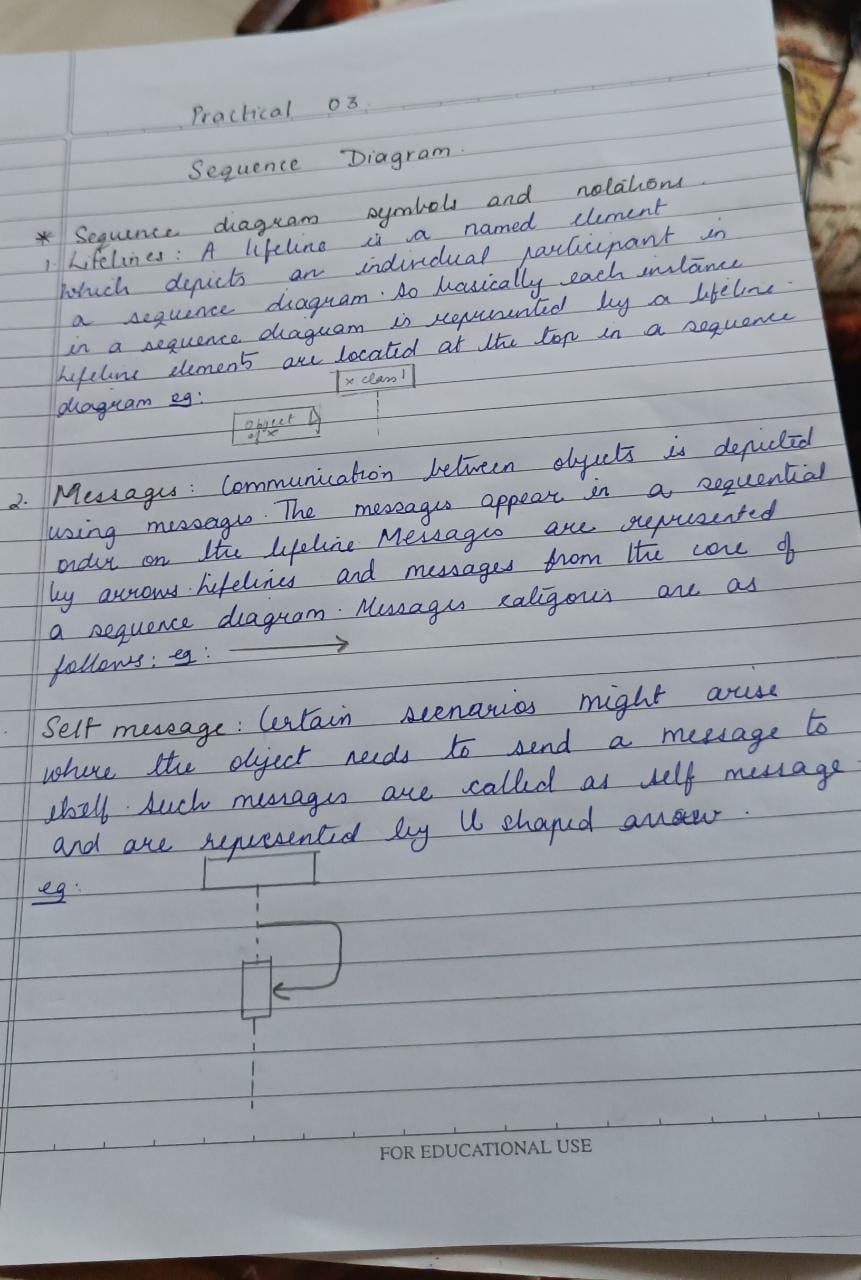 Practical 03
Sequence Diagram.
* Sequence diagram symbols and notations.
1. Lifelines: A lifeline is a named element
which depicts an individual participant in
a sequence diagram. So basically each instance
in a sequence diagram is represented by a lifeline.
Lifeline elements are located at the top in a sequence
diagram eg:
x class 1
object
of x
2. Messages: Communication between objects is depicted
using messages. The messages appear in a sequential
order on the lifeline Messages are represented
by arrows. Lifelines and messages from the core of
a sequence diagram. Messages categoris are as
follows: eg:
Self message: Certain scenarios might arise
where the object needs to send a message to
itself. Such messages are called as self message
and are represented by U shaped arrow.
eg:
FOR EDUCATIONAL USE